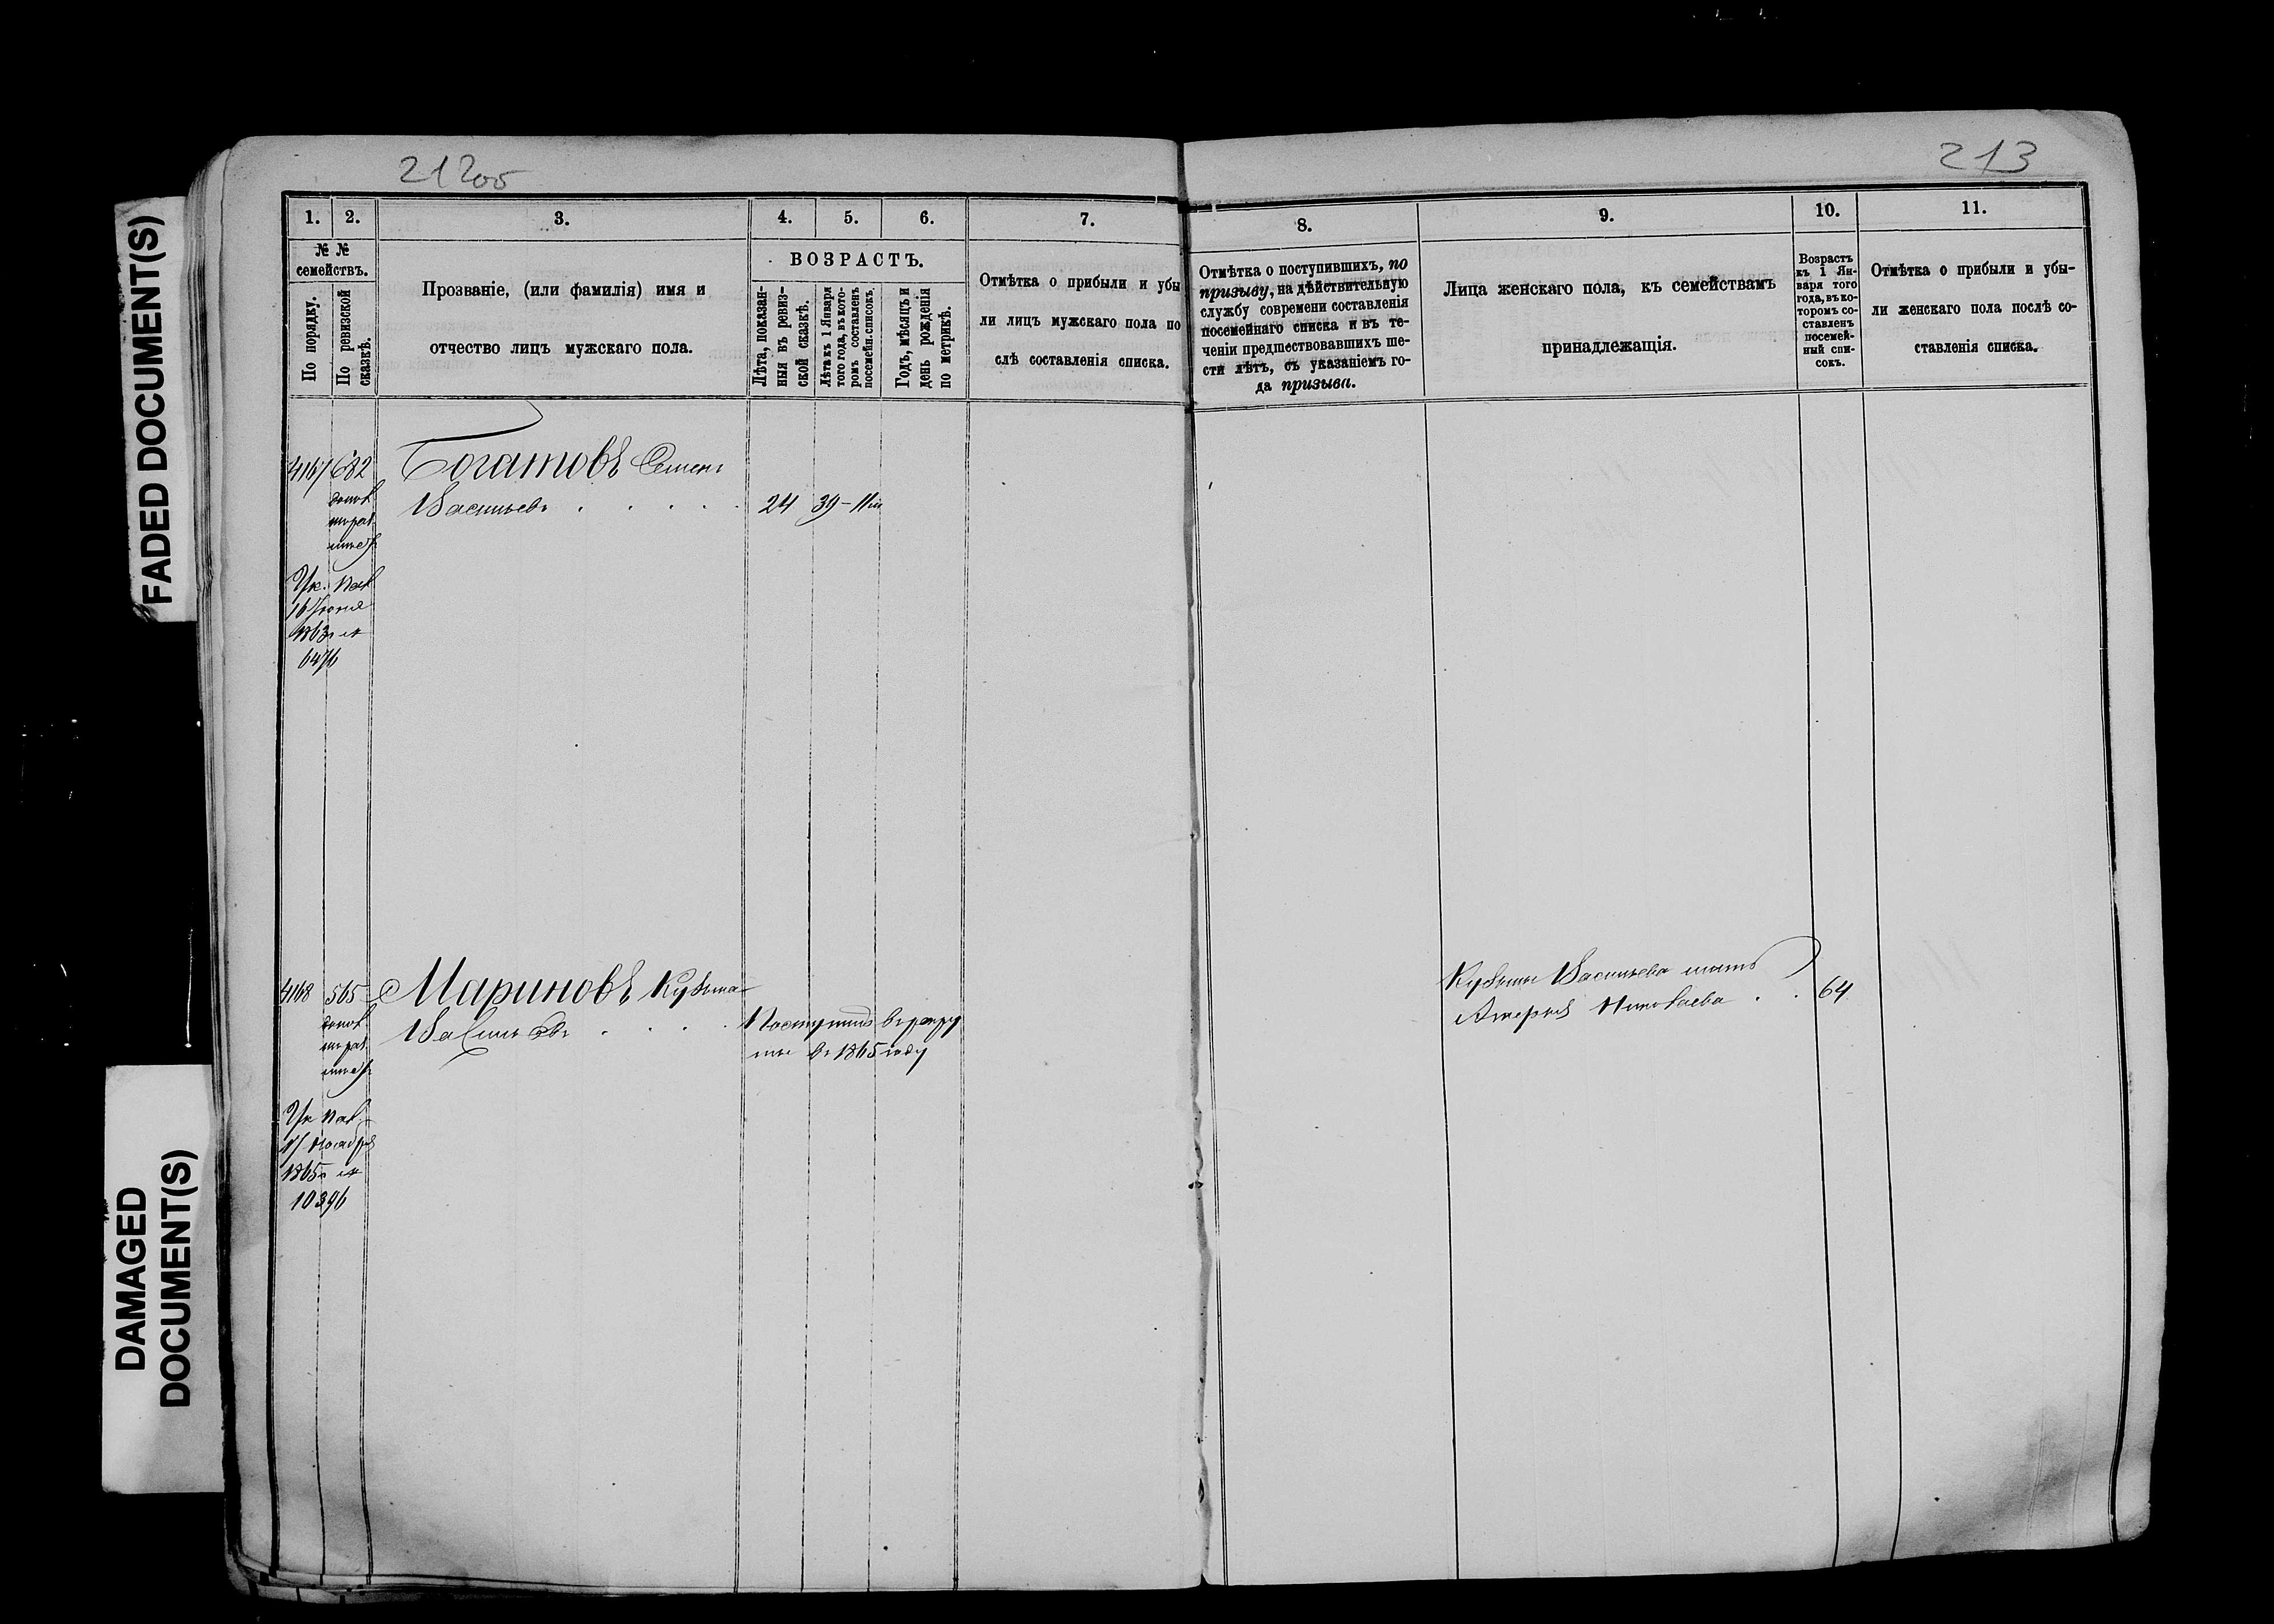 FADED DOCUMENT(S)
DAMAGED
DOCUMENT(S)
212об
213
1.
2.
3.
4.
5.
6.
7.
8.
9.
10.
11.
№ №
семействъ.
По порядку.
По ревизской
сказкѣ.
Прозваніе, (или фамилія) имя и
отчество лицъ мужскаго пола.
ВОЗРАСТЪ.
Лѣта, показан-
ныя въ ревиз-
ской сказкѣ.
Лѣта къ 1 Января
того года, въ кото-
ромъ составленъ
посемейн. списокъ
Годъ, мѣсяцъ и
день рожденія
по метрикѣ.
Отмѣтка о прибыли и убы
ли лицъ мужскаго пола по
слѣ составленія списка.
Отмѣтка о поступившихъ, по
призыву, на дѣйствительную
службу современи составленія
посемейнаго списка и въ те-
ченіи предшествовавшихъ ше-
сти лѣтъ, съ указаніемъ го-
да призыва.
Лица женскаго пола, къ семействамъ
принадлежащія.
Возрастъ
къ 1 Ян-
варя того
года, въ ко-
торомъ со-
ставленъ
посемей-
ный спи-
сокъ.
Отмѣтка о прибыли и убы-
ли женскаго пола послѣ со-
ставленія списка.
4167 682
Богатовъ Семенъ
Васильевъ 24 39-11м
Ук. Пал
16 Іюня
1863г №
6476
4168 565
Мариновъ Кузьма
Васильевъ
Поступилъ въ рекру
ты въ 1865 году
Кузьмы Васильева мать
Николаева 64
Ук Пал.
1865г №
10396